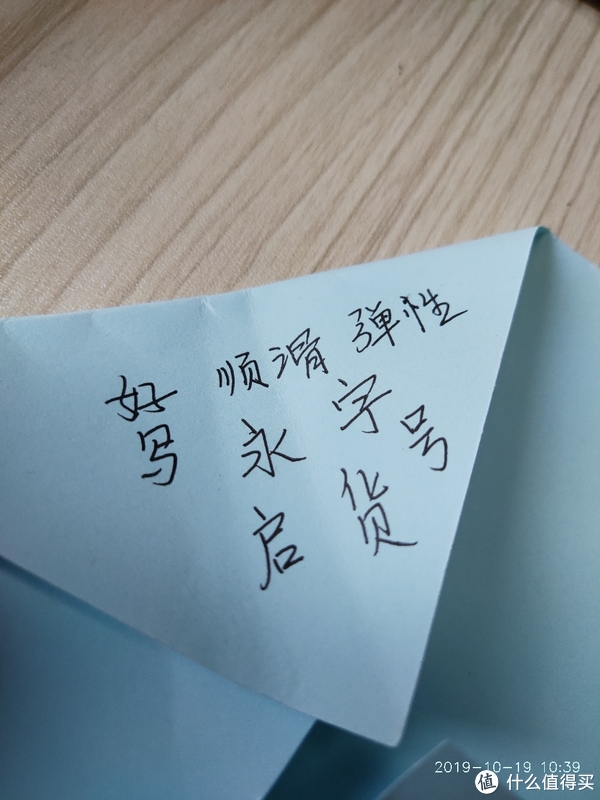 顺滑 弹性
好
写
永 字 号
启 货
2019-10-19 10:39
值 什么值得买